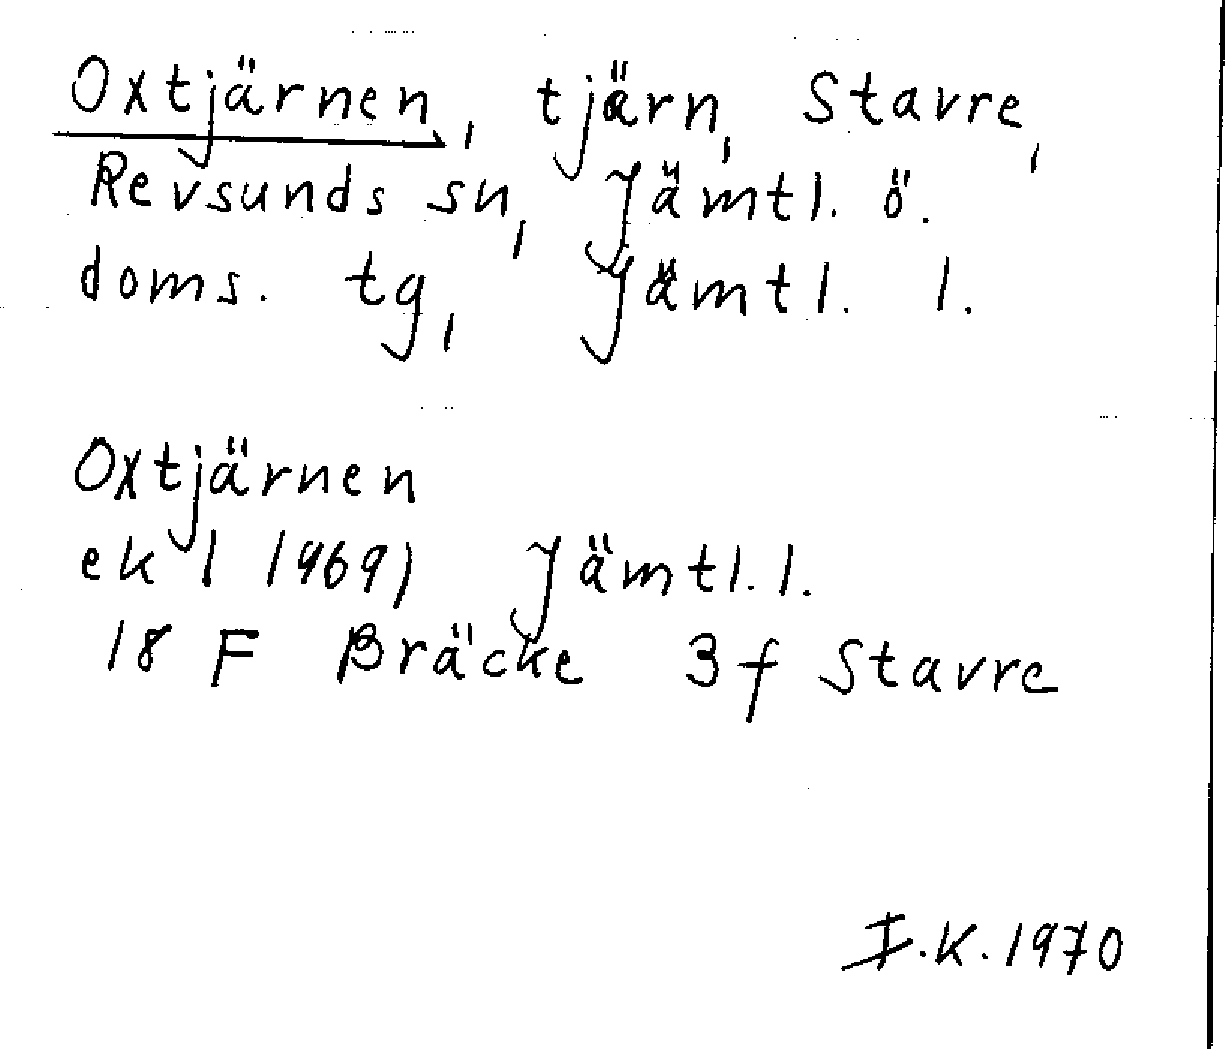 Oxtjärnen, tjärn, Stavre,
Revsunds sn, Jämtl. ö.
doms. tg, Jämtl. l.
Oxtjärnen
ek ( 1969) Jämtl. l.
18 F Bräcke 3 f Stavre
I.K. 1970